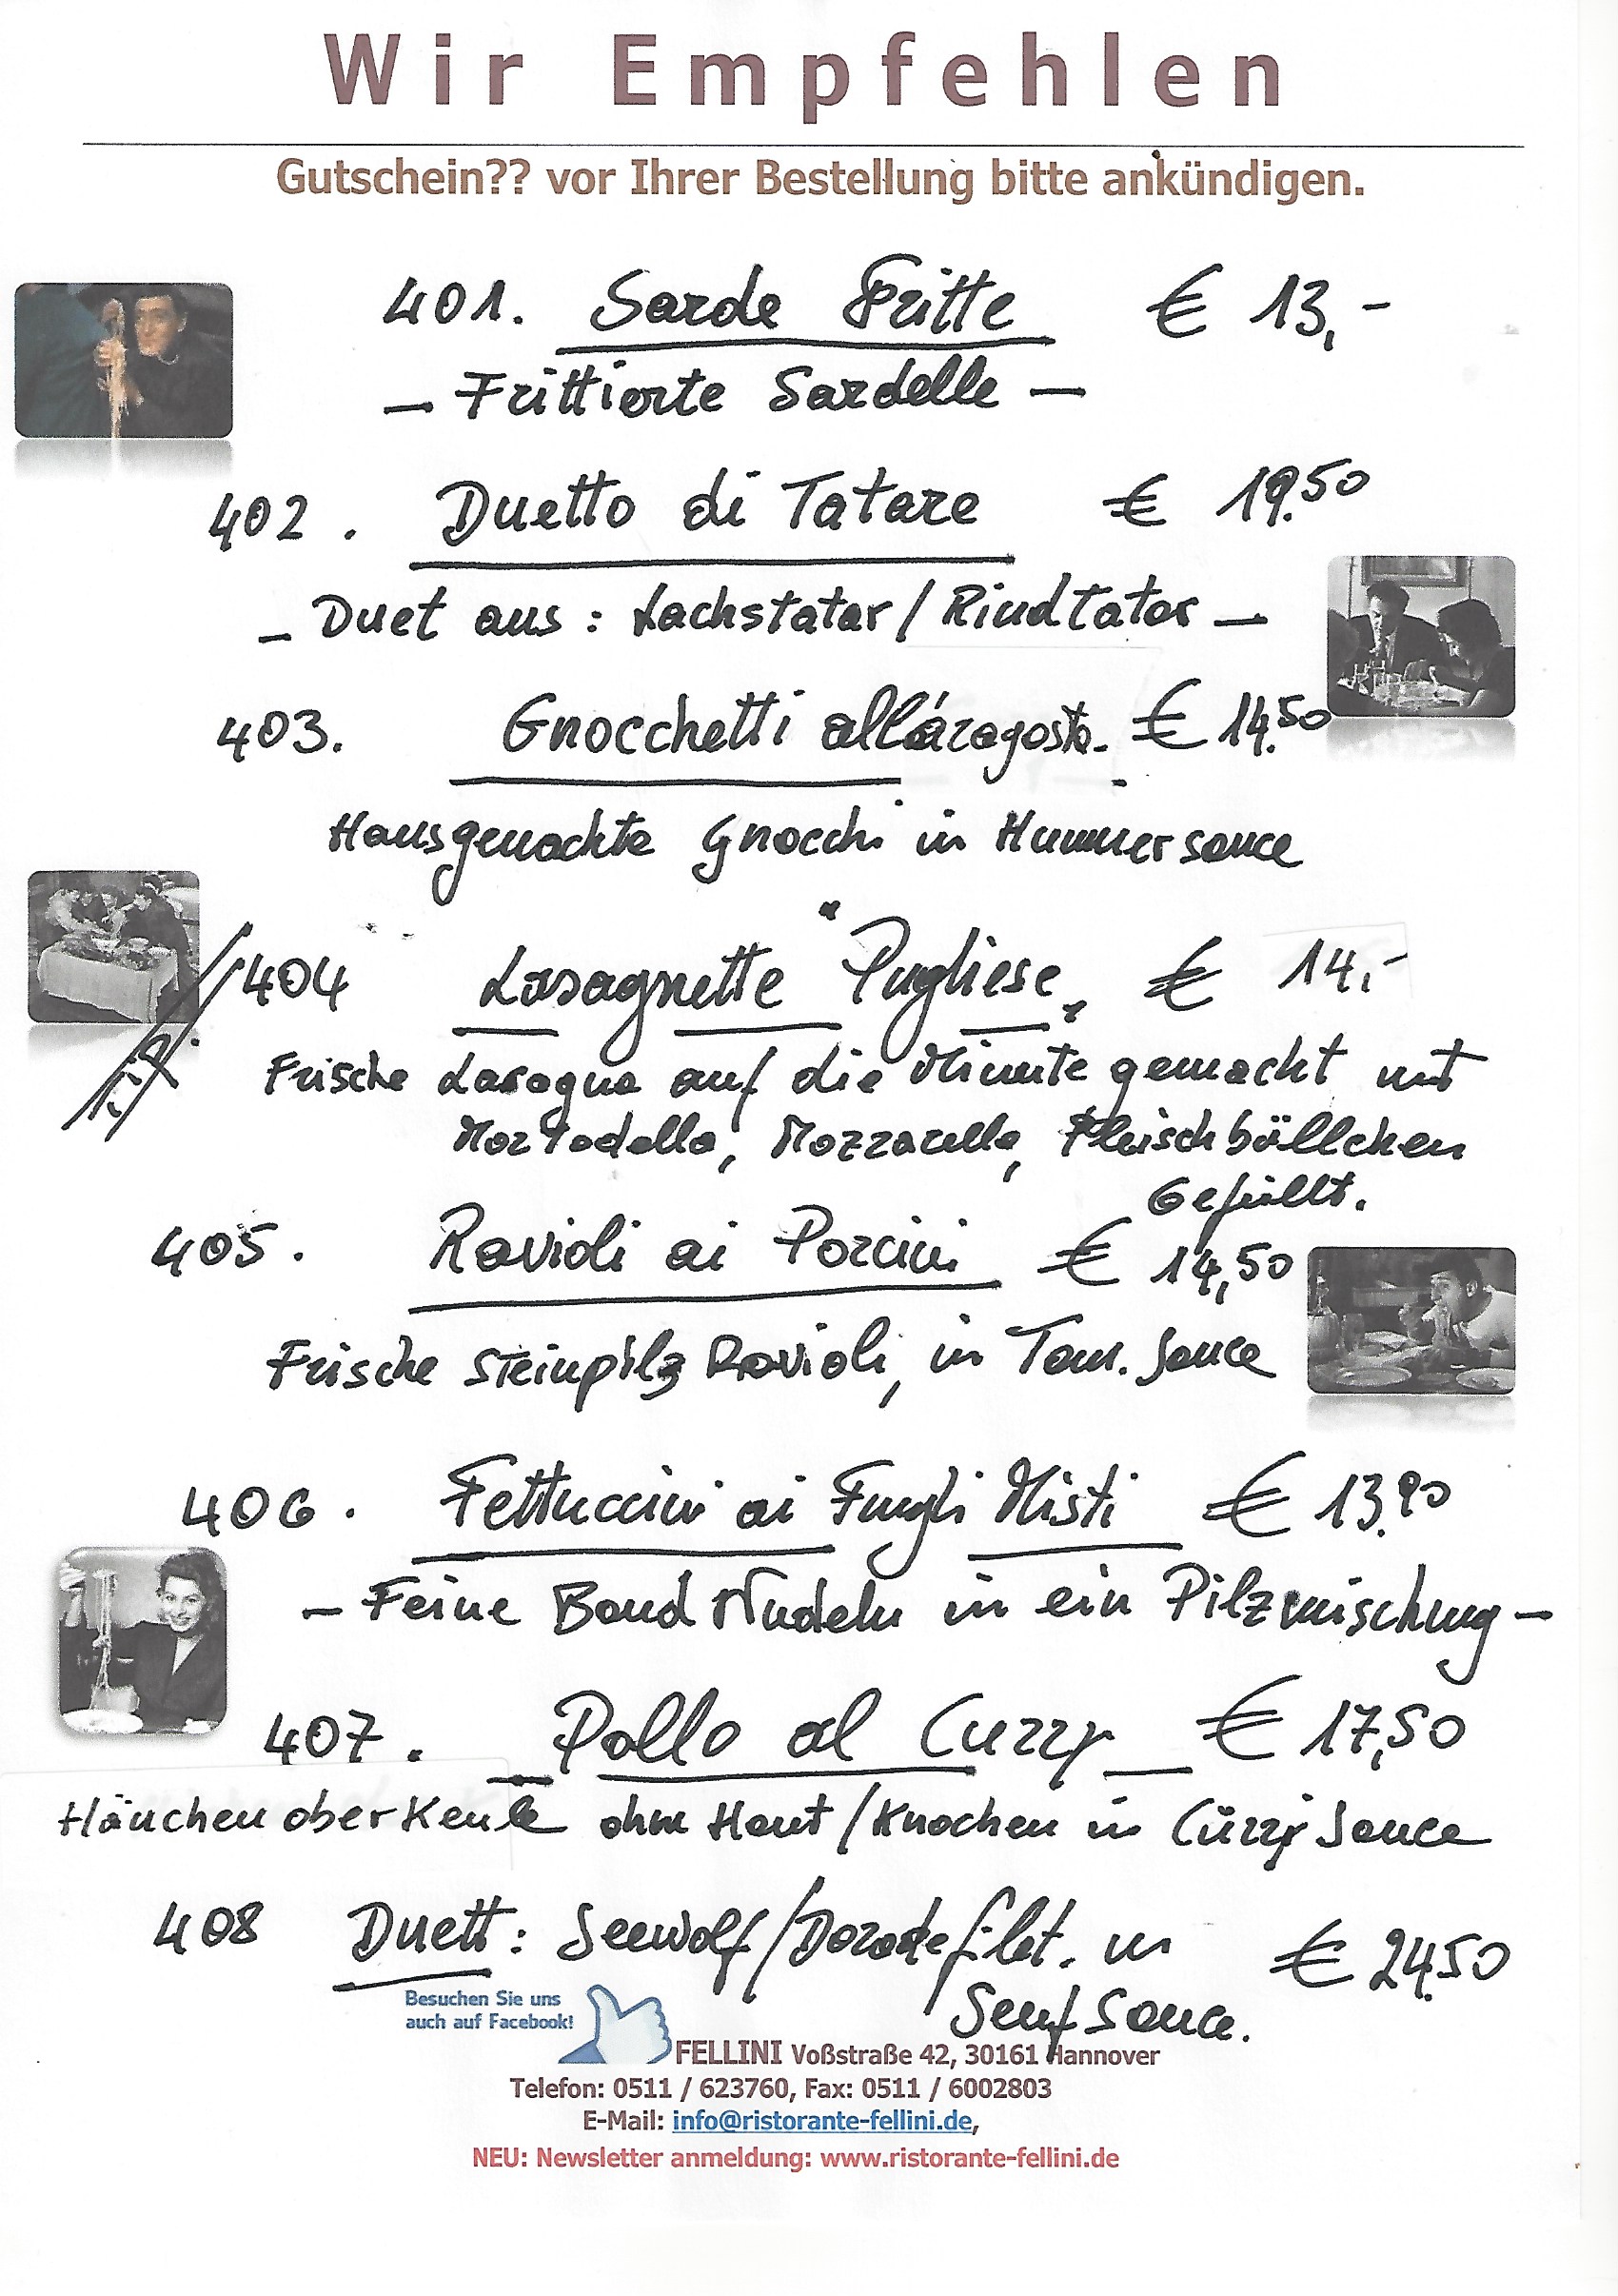 Wir Empfehlen
Gutschein?? vor Ihrer Bestellung bitte ankündigen.
401. Sarde Fritte € 13,-
- Frittierte Sardelle -
402. Duetto di Tatare € 19.50
- Duet aus: Lachstatar / Rindtatar -
403. Gnocchetti all'aragosta. € 14.50
Hausgemachte Gnocchi in Hummersauce
404 Lasagnette "Pugliese" € 14,-
Frische Lasagna auf die Minute gemacht mit
Mortadella, Mozzarella, Fleischbällchen
Gefüllt.
405. Ravioli ai Porcini € 14,50
Frische Steinpilz Ravioli, in Tom. Sauce
406. Fettuccini ai Funghi Misti € 13.90
- Feine Band Nudeln in ein Pilzmischung -
407. Pollo al Curry € 17,50
Hänchen oberkeule ohne Haut / Knochen in Cürry Sauce
408 Duett: Seewolf / Doradefilet. in € 24.50
Senf Sauce.
Besuchen Sie uns
auch auf Facebook!
FELLINI Voßstraße 42, 30161 Hannover
Telefon: 0511 / 623760, Fax: 0511 / 6002803
E-Mail: info@ristorante-fellini.de,
NEU: Newsletter anmeldung: www.ristorante-fellini.de